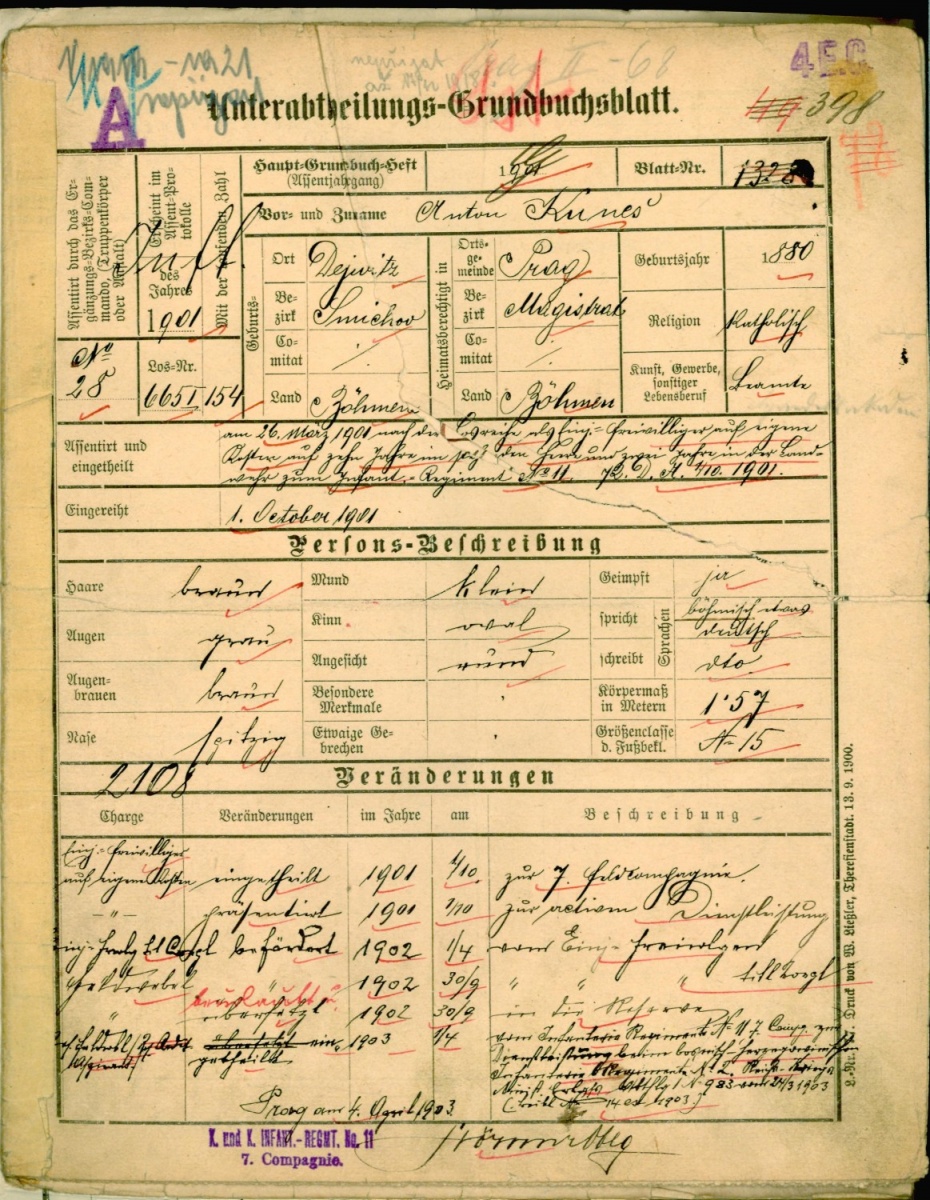 4EG
A
Unterabtheilungs-Grundbuchsblatt.
398
Assentirt durch das Ergänzungs-Bezirks-Commando, (Truppenkörper oder Anstalt)
No
28
Erscheint im Assent-Protokolle
des Jahres
1901
Mit der laufenden Zahl
Los-Nr.
665I 154
Haupt-Grundbuch-Heft
(Assentjahrgang)
1901
Blatt-Nr.
1328
Vor- und Zuname Anton Kuneš
Geburts-
Ort Dejwitz
Bezirk Smichov
Comitat
Land Böhmen
Heimatsberechtigt in
Ortsgemeinde Prag
Bezirk Magistrat
Comitat
Land Böhmen
Geburtsjahr 1880
Religion Katholisch
Kunst, Gewerbe, sonstiger Lebensberuf Beamte
Assentirt und eingetheilt
am 26. März 1901 nach der Losreihe als Einj.-Freiwilliger auf eigene
Kosten auf zehn Jahre im den Heere und zwei Jahre in der Land-
wehr zum Infant.-Regiment No 11. 1/10. 1901.
Eingereiht 1. October 1901
Persons-Beschreibung
Haare braun
Augen grau
Augenbrauen braun
Nase spitzig
Mund klein
Kinn oval
Angesicht rund
Besondere Merkmale
Etwaige Gebrechen
Geimpft ja
Sprachen
spricht böhmisch etwas deutsch
schreibt dto
Körpermaß in Metern 1·57
Größenclasse d. Fußbekl. 15
2108
Veränderungen
Charge Veränderungen im Jahre am Beschreibung
Einj.-Freiwilliger
auf eigene Kosten eingetheilt 1901 1/10. zur 7. Feldcompagnie.
-"- präsentiert 1901 1/10 zur activen Dienstleistung
befördert 1902 1/4 vom Einj.-
Feldwebel " 1902 30/9 " " " titl Corpl
" übersetzt 1902 30/9 in die Reserve
übersetzt ein- 1903 1/4 vom Infanterie Regiment N. 11 7. Comp. zur
getheilt Dienstleistung beim bosnisch-herzegovinischen
Infanterie Regimente N. 2. Reichs-Kriegs
Minist. Erlass Abthlg 1 N 983 vom 24/3 1903
1903.)
Prag am 4. April 1903
K. und K. INFANT.-REGMT. No. 11
7. Compagnie.
Druck von W. Ließler, Theresienstadt. 13. 9. 1900.